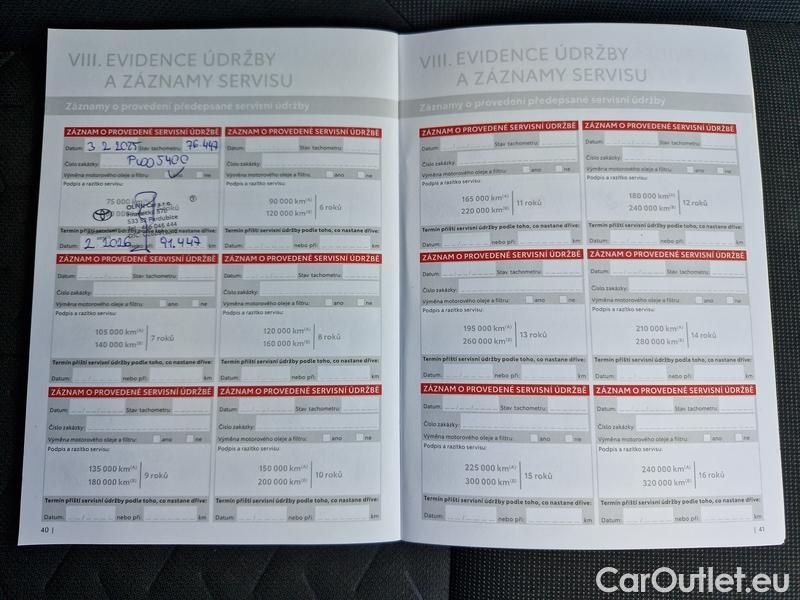 VIII. EVIDENCE ÚDRŽBY
A ZÁZNAMY SERVISU
Záznamy o provedení předepsané servisní údržby
ZÁZNAM O PROVEDENÉ SERVISNÍ ÚDRŽBĚ
Datum: 3 2 2025 Stav tachometru: 76 447
Číslo zakázky:
Výměna motorového oleje a filtru: ne
Podpis a razítko servisu
75 000
OLFIN Car s.r.o.
533 52 Pardubice
Termín příští servisní údržby podle toho, co nastane dříve:
Datum: 2 2026 nebo při: 91.447 km
ZÁZNAM O PROVEDENÉ SERVISNÍ ÚDRŽBĚ
Datum: Stav tachometru:
Číslo zakázky:
Výměna motorového oleje a filtru: ano ne
Podpis a razítko servisu
90 000 km(A)
120 000 km(B)
6 roků
Termín příští servisní údržby podle toho, co nastane dříve:
Datum: nebo při: km
ZÁZNAM O PROVEDENÉ SERVISNÍ ÚDRŽBĚ
Datum: Stav tachometru:
Číslo zakázky:
Výměna motorového oleje a filtru: ano ne
Podpis a razítko servisu
105 000 km(A)
140 000 km(B)
7 roků
Termín příští servisní údržby podle toho, co nastane dříve:
Datum: nebo při: km
ZÁZNAM O PROVEDENÉ SERVISNÍ ÚDRŽBĚ
Datum: Stav tachometru:
Číslo zakázky:
Výměna motorového oleje a filtru: ano ne
Podpis a razítko servisu
120 000 km(A)
160 000 km(B)
8 roků
Termín příští servisní údržby podle toho, co nastane dříve:
Datum: nebo při: km
ZÁZNAM O PROVEDENÉ SERVISNÍ ÚDRŽBĚ
Datum: Stav tachometru:
Číslo zakázky:
Výměna motorového oleje a filtru: ano ne
Podpis a razítko servisu
135 000 km(A)
180 000 km(B)
9 roků
Termín příští servisní údržby podle toho, co nastane dříve:
Datum: nebo při: km
ZÁZNAM O PROVEDENÉ SERVISNÍ ÚDRŽBĚ
Datum: Stav tachometru:
Číslo zakázky:
Výměna motorového oleje a filtru: ano ne
Podpis a razítko servisu
150 000 km(A)
200 000 km(B)
10 roků
Termín příští servisní údržby podle toho, co nastane dříve:
Datum: nebo při: km
40 |
VIII. EVIDENCE ÚDRŽBY
A ZÁZNAMY SERVISU
Záznamy o provedení předepsané servisní údržby
ZÁZNAM O PROVEDENÉ SERVISNÍ ÚDRŽBĚ
Datum: Stav tachometru:
Číslo zakázky:
Výměna motorového oleje a filtru: ano ne
Podpis a razítko servisu
165 000 km(A)
220 000 km(B)
11 roků
Termín příští servisní údržby podle toho, co nastane dříve:
Datum: nebo při: km
ZÁZNAM O PROVEDENÉ SERVISNÍ ÚDRŽBĚ
Datum: Stav tachometru:
Číslo zakázky:
Výměna motorového oleje a filtru: ano ne
Podpis a razítko servisu
180 000 km(A)
240 000 km(B)
12 roků
Termín příští servisní údržby podle toho, co nastane dříve:
Datum: nebo při: km
ZÁZNAM O PROVEDENÉ SERVISNÍ ÚDRŽBĚ
Datum: Stav tachometru:
Číslo zakázky:
Výměna motorového oleje a filtru: ano ne
Podpis a razítko servisu
195 000 km(A)
260 000 km(B)
13 roků
Termín příští servisní údržby podle toho, co nastane dříve:
Datum: nebo při: km
ZÁZNAM O PROVEDENÉ SERVISNÍ ÚDRŽBĚ
Datum: Stav tachometru:
Číslo zakázky:
Výměna motorového oleje a filtru: ano ne
Podpis a razítko servisu
210 000 km(A)
280 000 km(B)
14 roků
Termín příští servisní údržby podle toho, co nastane dříve:
Datum: nebo při: km
ZÁZNAM O PROVEDENÉ SERVISNÍ ÚDRŽBĚ
Datum: Stav tachometru:
Číslo zakázky:
Výměna motorového oleje a filtru: ano ne
Podpis a razítko servisu
225 000 km(A)
300 000 km(B)
15 roků
Termín příští servisní údržby podle toho, co nastane dříve:
Datum: nebo při: km
ZÁZNAM O PROVEDENÉ SERVISNÍ ÚDRŽBĚ
Datum: Stav tachometru:
Číslo zakázky:
Výměna motorového oleje a filtru: ano ne
Podpis a razítko servisu
240 000 km(A)
320 000 km(B)
16 roků
Termín příští servisní údržby podle toho, co nastane dříve:
Datum: nebo při: km
| 41
CarOutlet.eu